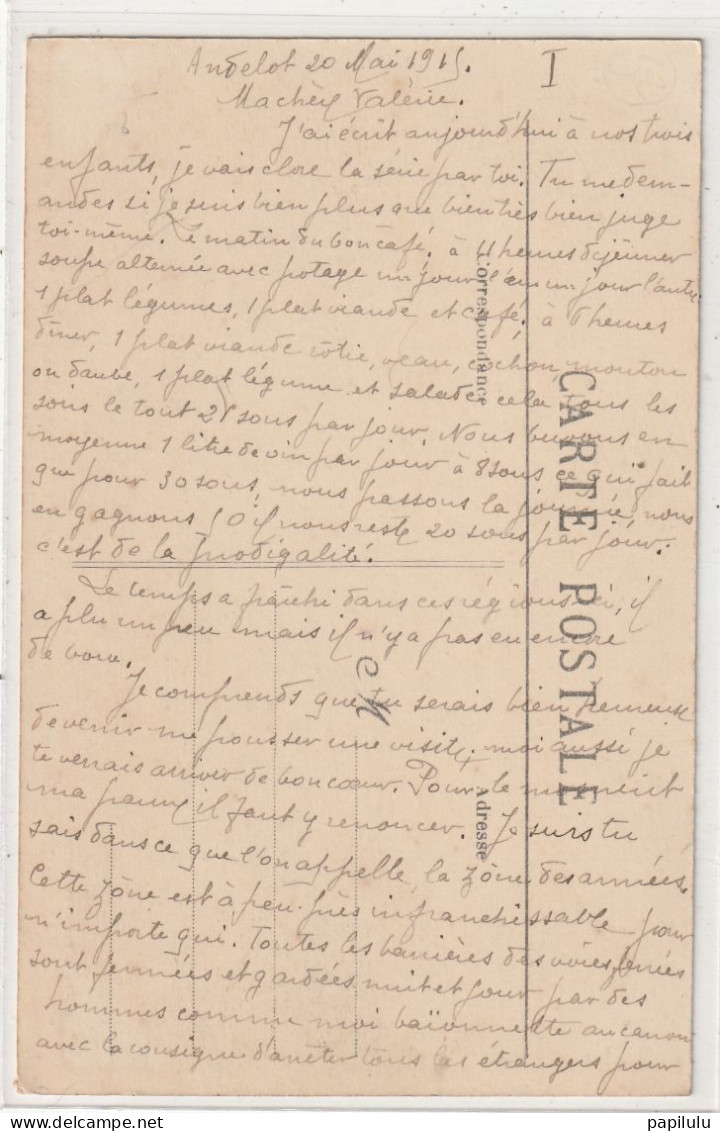 Andelot 20 Mai 1915.
I
Machère Valérie.
J'ai écrit aujourd'hui à nos trois
enfants, je vais clore la série par toi. Tu me dem-
andes si je suis bien plus que bien très bien juge
toi-même. Le matin du bon café. à 11 heures déjeuner
soupe alternée avec potage un jour l'un un jour l'autre
1 plat légumes, 1 plat viande et café, à 6 heures
dîner, 1 plat viande rôtie, veau, cochon, mouton
ou daube, 1 plat légume et salade cela tous les
soirs le tout 21 sous par jour. Nous buvons en
moyenne 1 litre de vin par jour à 8 sous ce qui fait
que pour 30 sous, nous passons la journée, nous
en gagnons 50 il nous reste 20 sous par jour.
c'est de la prodigalité.
Le temps a fraîchi dans ces régions-ci, il
a plu un peu mais il n'y a pas eu encore
de boue.
Je comprends que tu serais bien heureuse
de venir me pousser une visite, moi aussi je
te verrais arriver de bon cœur. Pour le moment
ma il faut y renoncer. Je suis tu
sais dans ce que l'on appelle la zône des armées.
Cette zône est à peu près infranchissable pour
n'importe qui. Toutes les barrières des voies ferrées
sont fermées et gardées nuit et jour par des
hommes comme moi baïonnette au canon
avec la consigne d'arrêter tous les étrangers pour
CARTE POSTALE
Correspondance
Adresse
papilulu